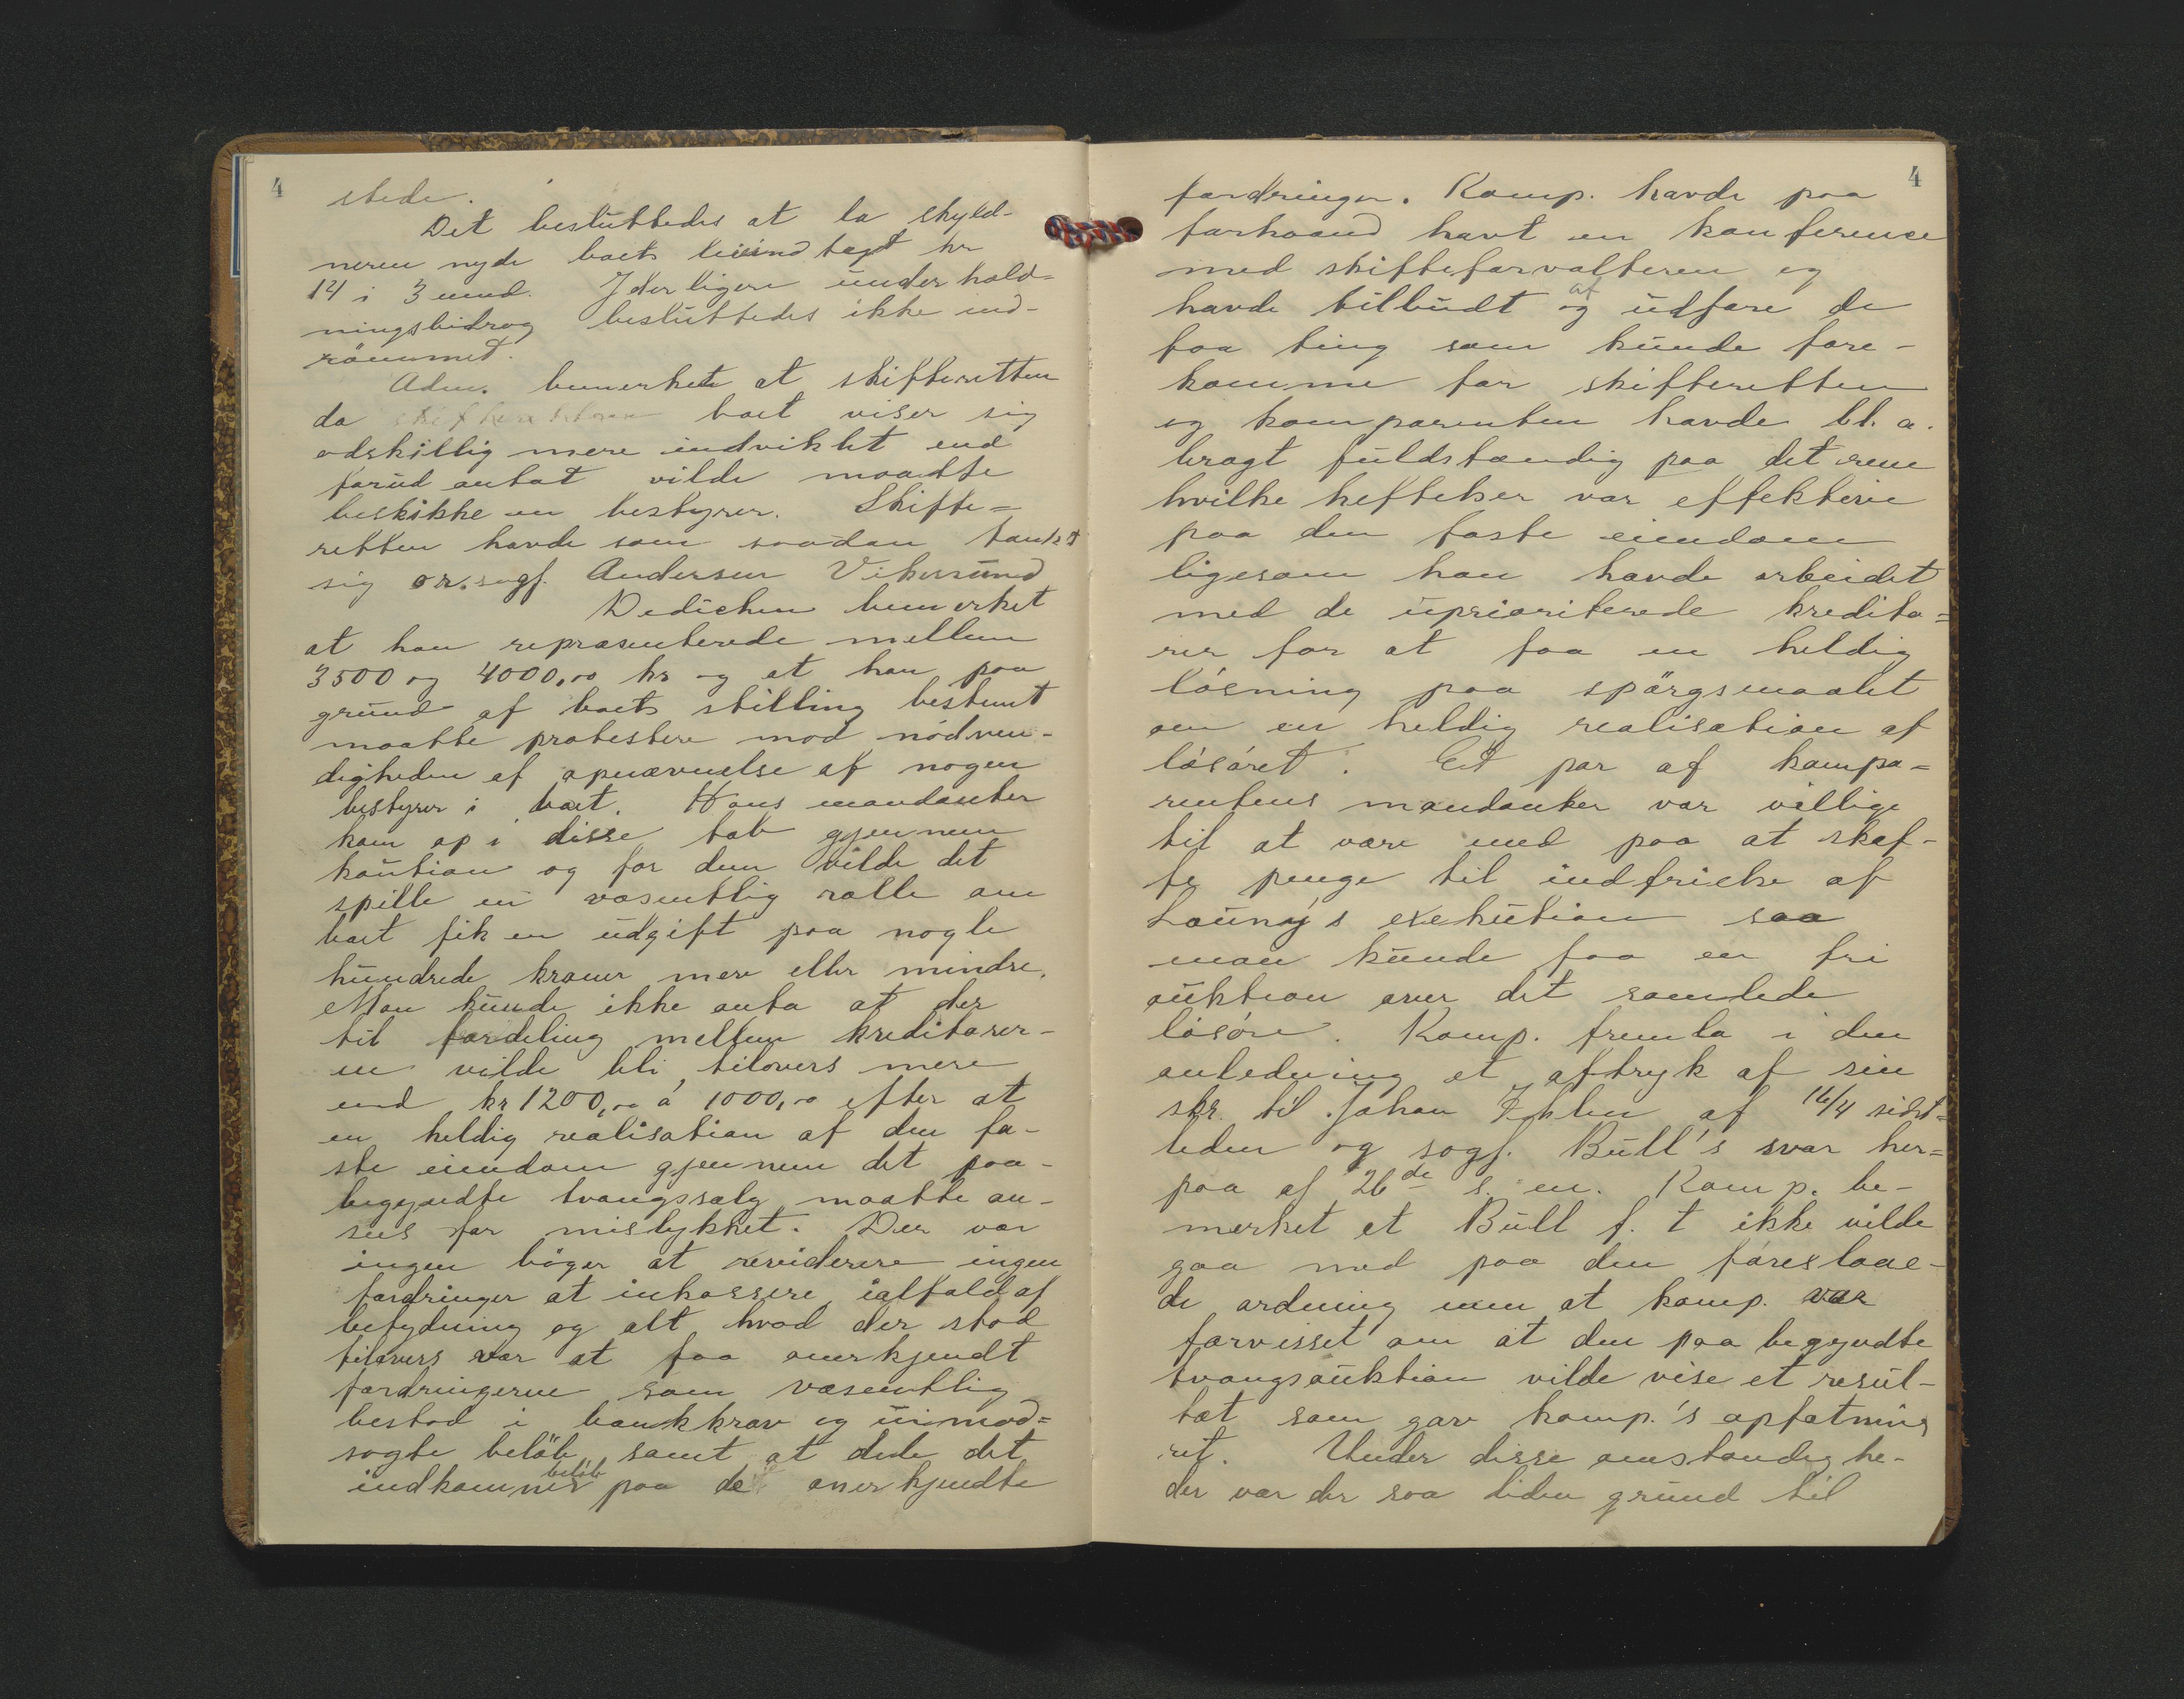 4
stede.
Det besluttedes at la skyld-
neren nyde boets leieindtægt kr
14 i 3 mnd. Yderligere underhold=
ningsbidrag besluttedes ikke ind-
rømmet.
Adm. bemerkete at skifteretten
da boet viser sig
adskillig mere indviklet end
forud antat vilde maatte
beskikke en bestyrer. Skifte=
retten havde som saadan tænkt
sig or.sagf. Andersen Vikersund
Dedichen bemerket
at han repræsenterede mellem
3500 og 4000,00 kr og at han paa
grund af boets stilling bestemt
maatte protestere mod nødven-
digheden af opnævnelse af nogen
bestyrer i boet. Hans mandanter
kom op i disse tab gjennem
kaution og for dem vilde det
spille en væsentlig rolle om
boet fik en udgift paa nogle
hundrede kroner mere eller mindre.
Man kunde ikke anta at der
til fordeling mellem kreditorer-
ne vilde bli tilovers mere
end kr 1200,00 á 1000,00 efter at
en heldig realisation af den fa-
ste eiendom gjennem det paa-
begyndte tvangssalg maatte an-
sees for mislykket. Der var
ingen bøger at revidere ingen
fordringer at inkassere ialfald af
betydning og alt hvad der stod
tilovers var at faa anerkjendt
fordringerne som væsentlig
bestod i bankkrav og uimod=
sagte beløb samt at dele det
indkomne beløb paa de anerkjendte
4
fordringer. Komp. havde paa
forhaand havt en konference
med skifteforvalteren og
havde tilbudt og at udføre de
faa ting som kunde fore-
komme for skifteretten
og komparenten havde bl. a.
bragt fuldstændig paa det rene
hvilke heftelser var effektive
paa den faste eiendom
ligesom han havde arbeidet
med de uprioriterede kredito=
rer for at faa en heldig
løsning paa spørgsmaalet
om en heldig realisation af
løsøret. Et par af kompa=
rentens mandanter var villige
til at være med paa at skaf-
fe penge til indfrielse af
exekution saa
man kunde faa en fri
auktion over det samlede
løsøre. Komp. fremla i den
anledning et aftryk af sin
skr. til Johan Ihlen af 16/4 sidst=
leden og sagf. Bull's svar her=
paa af 26de s. m. Komp. be-
merket at Bull f. t ikke vilde
gaa med paa den foreslaae-
de ordning men at komp. var
forvisset om at den paa begyndte
tvangsauktion vilde vise et resul-
tat som gav komp.'s opfatning
ret. Under disse omstændighe-
der var der saa liden grund til